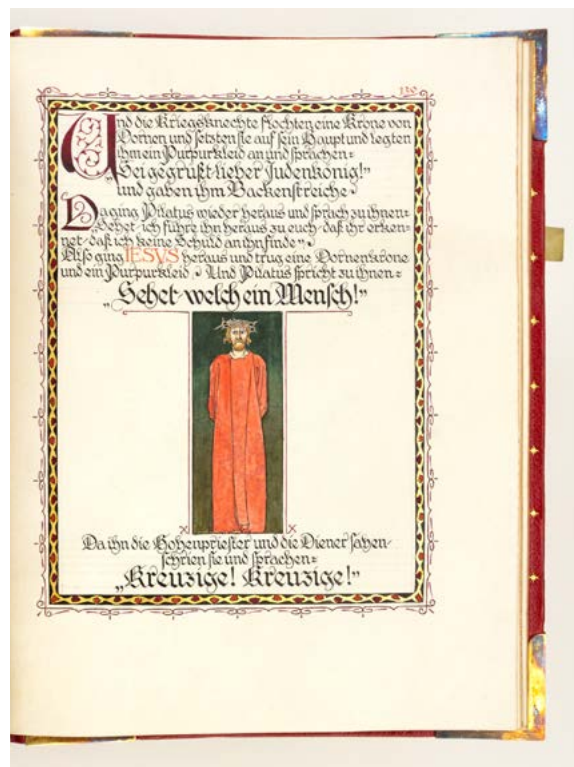 Und die Kriegsknechte flochten eine Krone von
Dornen und setzten sie auf sein Haupt und legten
ihm ein Purpurkleid an und sprachen:
„Sei gegrüßt lieber Judenkönig!"
und gaben ihm Backenstreiche.
Da ging Pilatus wieder heraus und sprach zu ihnen:
„Sehet, ich führe ihn heraus zu euch, daß ihr erken-
net, daß ich keine Schuld an ihn finde".
Also ging IESVS heraus und trug eine Dornenkrone
und ein Purpurkleid. Und Pilatus spricht zu ihnen:
„Sehet, welch ein Mensch!"
Da ihn die Hohenpriester und die Diener sahen,
schrien sie und sprachen:
„Kreuzige! Kreuzige!"